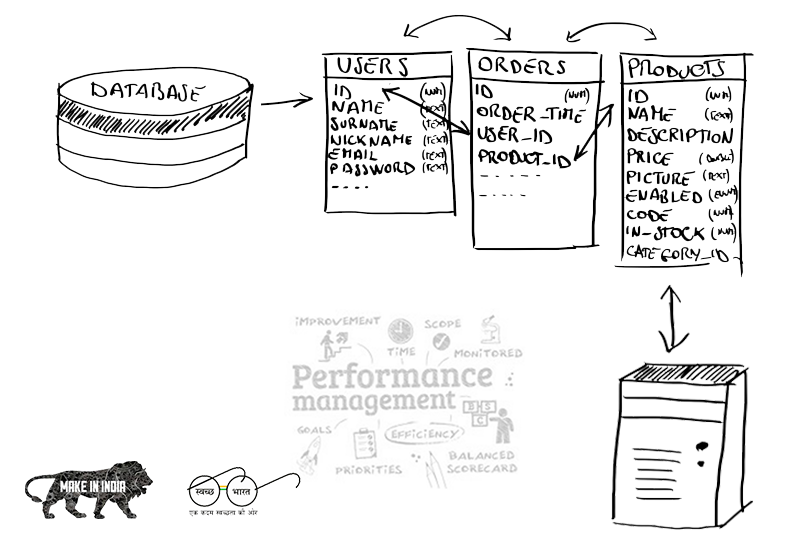 DATABASE
USERS
ID (NUM)
NAME (TEXT)
SURNAME (TEXT)
NICKNAME (TEXT)
EMAIL (TEXT)
PASSWORD (TEXT)
ORDERS
ID (NUM)
ORDER_TIME
USER_ID
PRODUCT_ID
PRODUCTS
ID (NUM)
NAME (TEXT)
DESCRIPTION
PRICE
PICTURE (TEXT)
ENABLED (ENUM)
CODE (NUM)
IN-STOCK (NUM)
CATEGORY_ID
IMPROVEMENT
TIME
SCOPE
MONITORED
Performance
management
B S
C
GOALS
PRIORITIES
EFFICIENCY
BALANCED
SCORECARD
MAKE IN INDIA
स्वच्छ भारत
एक कदम स्वच्छता की ओर